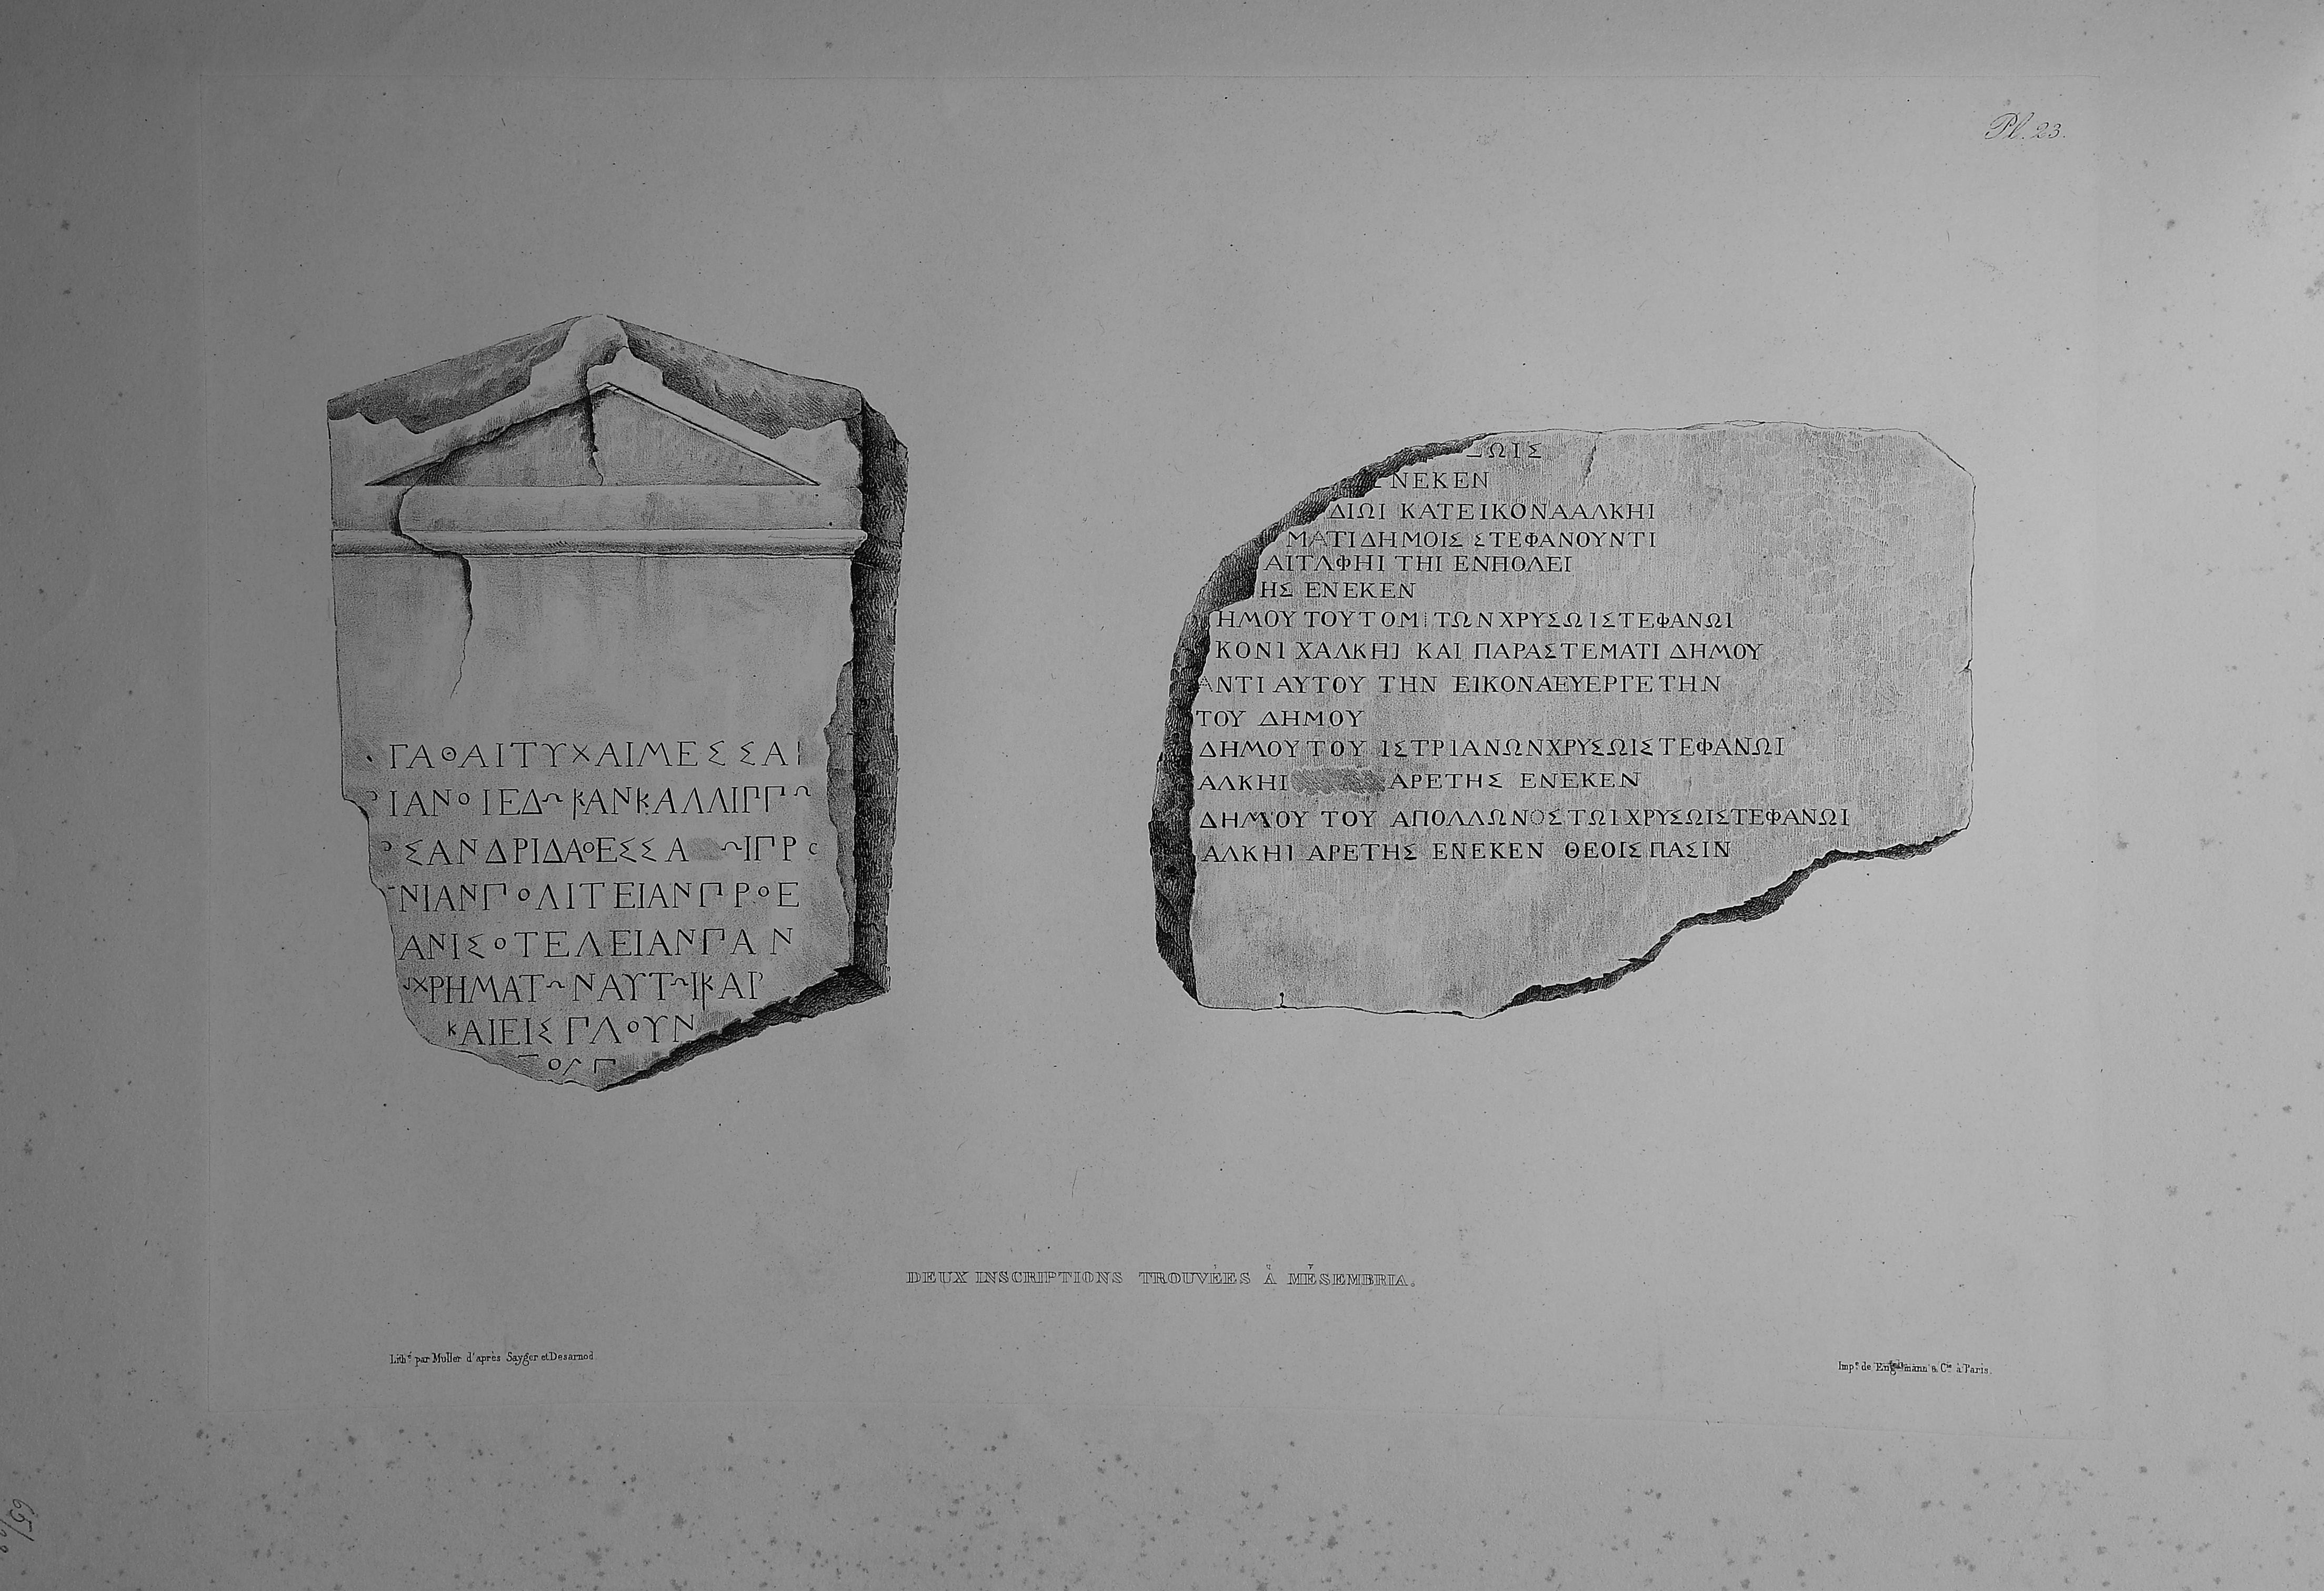 Pl. 23.
ΓΑΘΑΙΤΥΧΑΙΜΕΣΣΑΙ
ΙΑΝΟΙΕΔΩΚΑΝΚΑΛΛΙΠΠΩ
ΣΑΝΔΡΙΔΑΘΕΣΣΑ ΩΙΠΡΟ
ΝΙΑΝΠΟΛΙΤΕΙΑΝΠΡΟΕ
ΑΝΙΣΟΤΕΛΕΙΑΝΠΑΝ
ΧΡΗΜΑΤΩΝΑΥΤΩΙΚΑΙ
ΚΑΙΕΙΣΠΛΟΥΝ
ΩΙΣ
ΝΕΚΕΝ
ΔΙΩΙ ΚΑΤΕΙΚΟΝΑΑΛΚΗΙ
ΜΑΤΙΔΗΜΟΙΣ ΣΤΕΦΑΝΟΥΝΤΙ
ΑΙΤΑΦΗΙ ΤΗΙ ΕΝΠΟΛΕΙ
ΗΣ ΕΝΕΚΕΝ
ΗΜΟΥ ΤΟΥ ΤΟΜΙΤΩΝ ΧΡΥΣΩΙΣΤΕΦΑΝΩΙ
ΚΟΝΙ ΧΑΛΚΗΙ ΚΑΙ ΠΑΡΑΣΤΕΜΑΤΙ ΔΗΜΟΥ
ΑΝΤΙ ΑΥΤΟΥ ΤΗΝ ΕΙΚΟΝΑΕΥΕΡΓΕΤΗΝ
ΤΟΥ ΔΗΜΟΥ
ΔΗΜΟΥ ΤΟΥ ΙΣΤΡΙΑΝΩΝΧΡΥΣΩΙΣΤΕΦΑΝΩΙ
ΑΛΚΗΙ ΑΡΕΤΗΣ ΕΝΕΚΕΝ
ΔΗΜΟΥ ΤΟΥ ΑΠΟΛΛΩΝΟΣΤΩΙΧΡΥΣΩΙΣΤΕΦΑΝΩΙ
ΑΛΚΗΙ ΑΡΕΤΗΣ ΕΝΕΚΕΝ ΘΕΟΙΣ ΠΑΣΙΝ
DEUX INSCRIPTIONS TROUVÉES À MÉSEMBRIA.
Lith.é par Muller d'après Sayger et Desarnod
Imp.e de Engelmann & Cie à Paris.